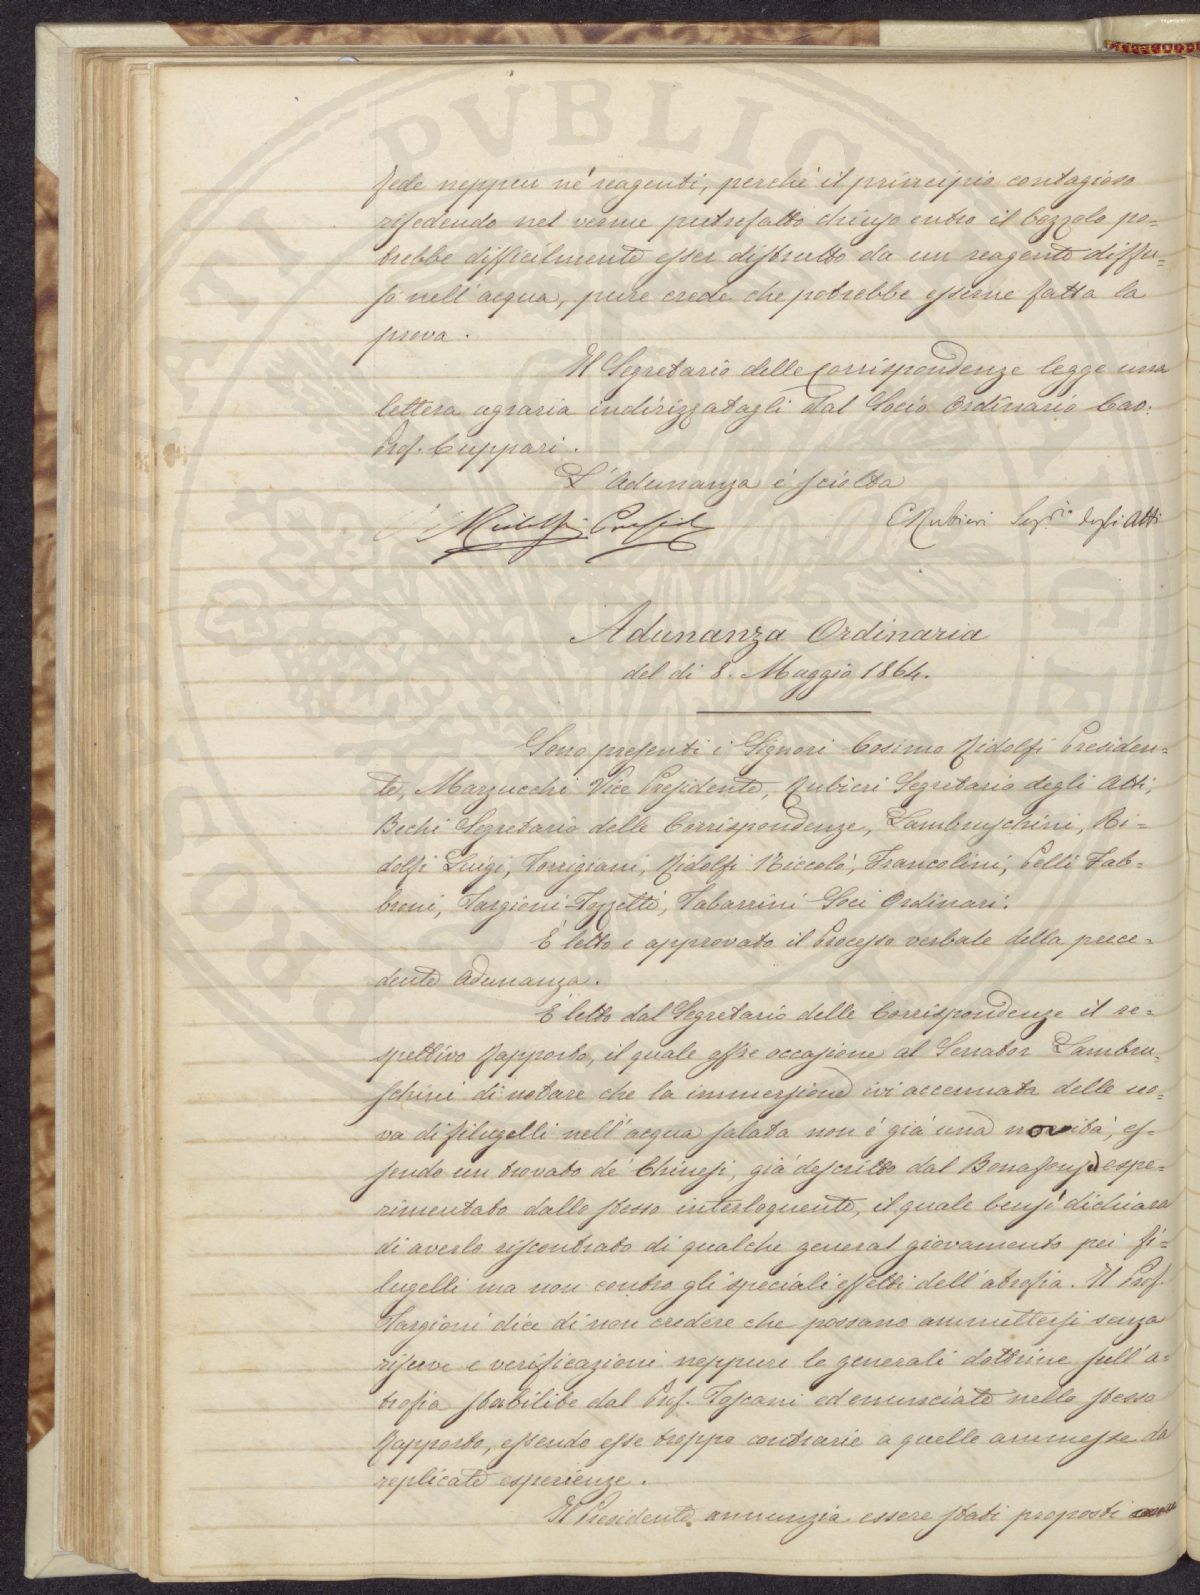 fede neppur ne' reagenti, perchè il principio contagioso
risedendo nel verme putrefatto chiuso entro il bozzolo po=
trebbe difficilmente esser distrutto da un reagente diffu=
so nell'acqua, pure crede che potrebbe esserne fatta la
prova.
Il Segretario delle Corrispondenze legge una
lettera agraria indirizzatagli dal Socio Ordinario Cav:
Prof. Cuppari.
L'Adunanza è sciolta
Ridolfi Presid
ERubieri Seg.rio degli Atti
Adunanza Ordinaria
del dì 8. Maggio 1864.
Sono presenti i Signori Cosimo Ridolfi Presiden=
te, Marzucchi Vice Presidente, Rubieri Segretario degli Atti,
Bechi Segretario delle Corrispondenze, Lambruschini, Ri=
dolfi Luigi, Torrigiani, Ridolfi Niccolò, Francolini, Pelli Fab=
broni, Targioni-Tozzetti, Tabarrini Soci Ordinari.
È letto e approvato il Processo verbale della prece=
dente Adunanza.
È letto dal Segretario delle Corrispondenze il re=
spettivo Rapporto, il quale offre occasione al Senator Lambru=
schini di notare che la immersione ivi accennata delle uo=
va di filugelli nell'acqua salata non è già una novità, es=
sendo un trovato de' Chinesi, già descritto dal Bonafous, e spe=
rimentato dallo stesso interloquente, il quale bensì dichiara
di averlo riscontrato di qualche general giovamento pei fi=
lugelli ma non contro gli speciali effetti dell'atrofia. Il Prof.
Targioni dice di non credere che possano ammettersi senza
riserve e verificazioni neppure le generali dottrine sull'a=
trofia stabilite dal Prof. Toscani ed enunciate nello stesso
Rapporto, essendo esse troppo contrarie a quelle ammesse da
replicate esperienze.
Il Presidente annunzia essere stati proposti
PVBLICA